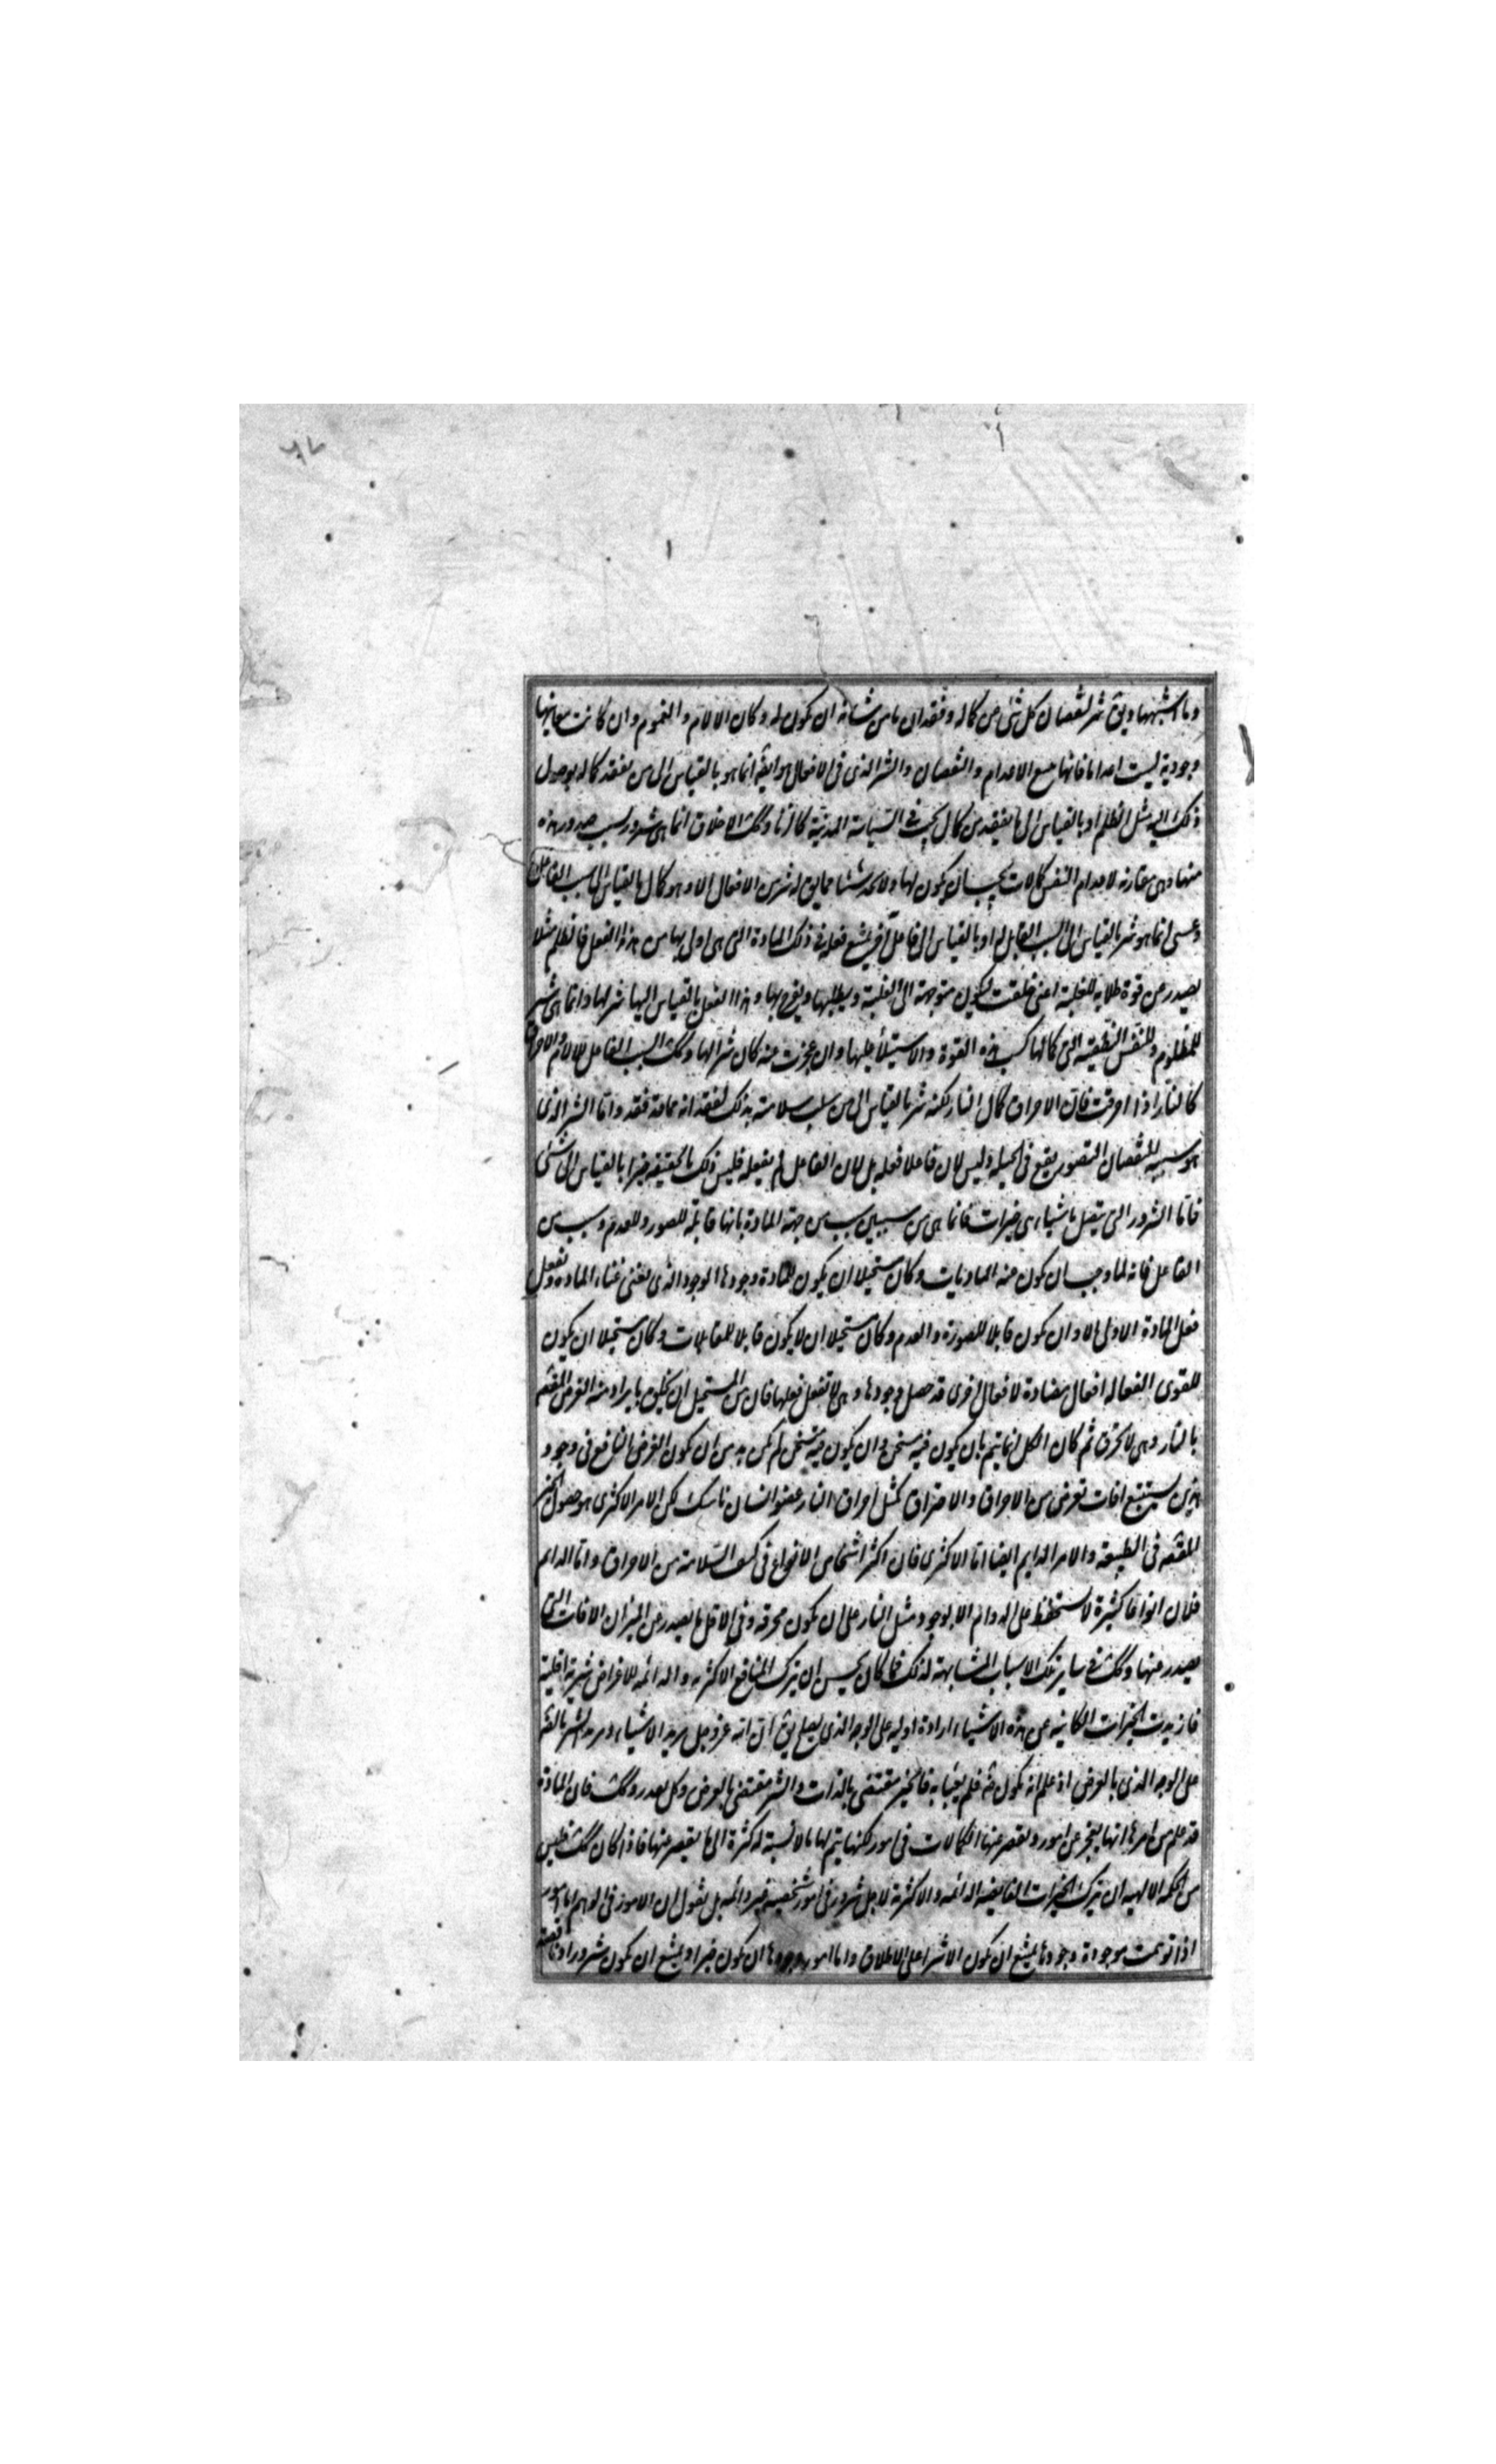 وما اشبهها ويق شر لنقصان كل شئ عن كماله وفقدان ما من شانه ان يكون له وكان الالام والغموم وان كانت معانيها
وجودية ليست اعداما فانها تتبع الاعدام والنقصان والشر الذى فى الافعال هو ايضا انما هو بالقياس الى من يفقد كماله بوصول
ذلك اليه مثل الظلم او بالقياس الى ما يفقد من كمال يجب فى السياسة المدنية كالزنا وكك الاخلاق انما هى شرور لسبب صدور هذه
منها وهى مقارنه لاعدام النفس كمالات يجب ان يكون لها ولا تجد شيئا مما يق له شر من الافعال الا وهو كمال بالقياس الى سببه الفاعل له
وعسى انما هو شر بالقياس الى السبب القابل له او بالقياس الى فاعل آخر يمنع فعله فى ذلك المادة التى هى اولى بها من هذا الفعل فالظلم مثلا
يصدر عن قوة طلابه للغلبة اعنى خلقت ليكون متوجهة الى الغلبة ويطلبها ويفرح بها وهذا الفعل بالقياس اليها شر لها وانما هى شر
للمظلوم وللنفس النطقيه التى كمالها كسر هذه القوة والاستيلاء عليها وان عجزت عنه كان شرا لها وكك السبب الفاعل للالام والاحراق
كالنار اذا احرقت فان الاحراق كمال النار لكنه شر بالقياس الى من سلب سلامته بذلك لفقدانه ما قد فقد واما الشر الذى
هو سببه النقصان القصور يقع فى الجبلة وليس لان فاعلا فعله بل لان الفاعل لم يفعله فليس ذلك بالحقيقة خيرا بالقياس الى شئ
فاما الشرور التى يتصل باشياء هى خيرات فانما هى من سببين سبب من جهة المادة بانها قابلة للصور وللعدم وسبب من
الفاعل فانه لما وجب ان يكون عنه الماديات وكان مستحيلا ان يكون للمادة وجودها الوجود الذى يغنى غناء المادة وتفعل
فعل المادة الاولى الا وان يكون قابلا للصورة والعدم وكان مستحيلا ان لا يكون قابلا للمقابلات وكان مستحيلا ان يكون
للقوى الفعاله افعال مضادة لافعال اخرى قد حصل وجودها وهى لا تفعل فعلها فان من المستحيل ان يخلق ما يراد منه الغرض المقصود
بالنار وهى لا تحرق ثم كان الكل انما يتم بان يكون فيه مسخن وان يكون فيه متسخن لم يكن بد من ان يكون الغرض النافع فى وجود
هذين يستتبع افات تعرض من الاحراق والاحتراق كمثل احراق النار عضو انسان ناسك لكن الامر الاكثرى هو حصول الخير
المقصود فى الطبيعة والامر الدايم ايضا اما الاكثرى فان اكثر اشخاص الانواع فى كنف السلامة من الاحراق واما الدايم
فلان انواعا كثيرة لا يستحفظ على الدوام الا بوجود مثل النار على ان يكون محرقه وفى الاقل ما يصدر عن النيران الافات التى
يصدر عنها وكك فى ساير تلك الاسباب المشابهة لذلك فما كان يحسن ان يترك المنافع الاكثريه والدائمه لاغراض شريه اقلية
فاريدت الخيرات الكاينه عن هذه الاشياء ارادة اوليه على الوجه الذى يصلح يق ان الله عز وجل يريد الاشياء ويريد الشر ايضا
على الوجه الذى بالعرض اذ علم انه يكون ضرورة فلم يعبأ به فالخير مقتضى بالذات والشر مقتضى بالعرض وكل بقدر وكك فان المادة
قد علم من امرها انها يعجز عن امور وتقصر عنها الكمالات فى امور لكنها يتم لها ما لا نسبة له كثرة الى ما يقصر عنها فاذا كان كك فليس
من الحكمة الالهيه ان يترك الخيرات الفايضه الدائمه والاكثرية لاجل شرور فى امور شخصية غير دائمه بل نقول ان الامور فى الوهم اما امور
اذا توهمت موجودة وجودها يمتنع ان يكون الا شرا على الاطلاق واما امور وجودها ان يكون خيرا ويمتنع ان يكون شرورا وناقصة